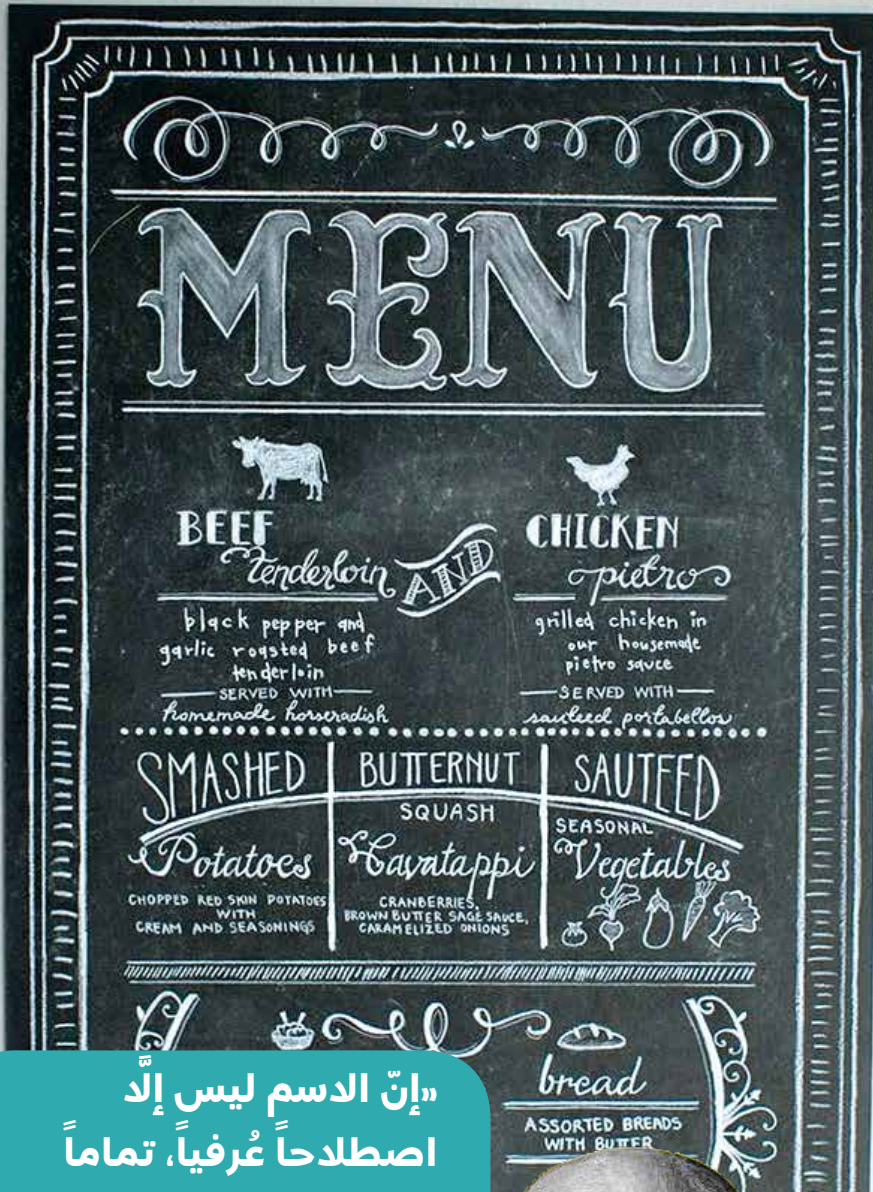 MENU
BEEF
Tenderloin
AND
CHICKEN
pietro
black pepper and
garlic roasted beef
tenderloin
SERVED WITH
homemade horseradish
grilled chicken in
our housemade
pietro sauce
SERVED WITH
sauteed portabellos
SMASHED
Potatoes
CHOPPED RED SKIN POTATOES
WITH
CREAM AND SEASONINGS
BUTTERNUT
SQUASH
Cavatappi
CRANBERRIES,
BROWN BUTTER SAGE SAUCE,
CARAMELIZED ONIONS
SAUTEED
SEASONAL
Vegetables
bread
ASSORTED BREADS
WITH BUTTER
«إنّ الاسم ليس إلَّا
اصطلاحاً عُرفياً، تماماً